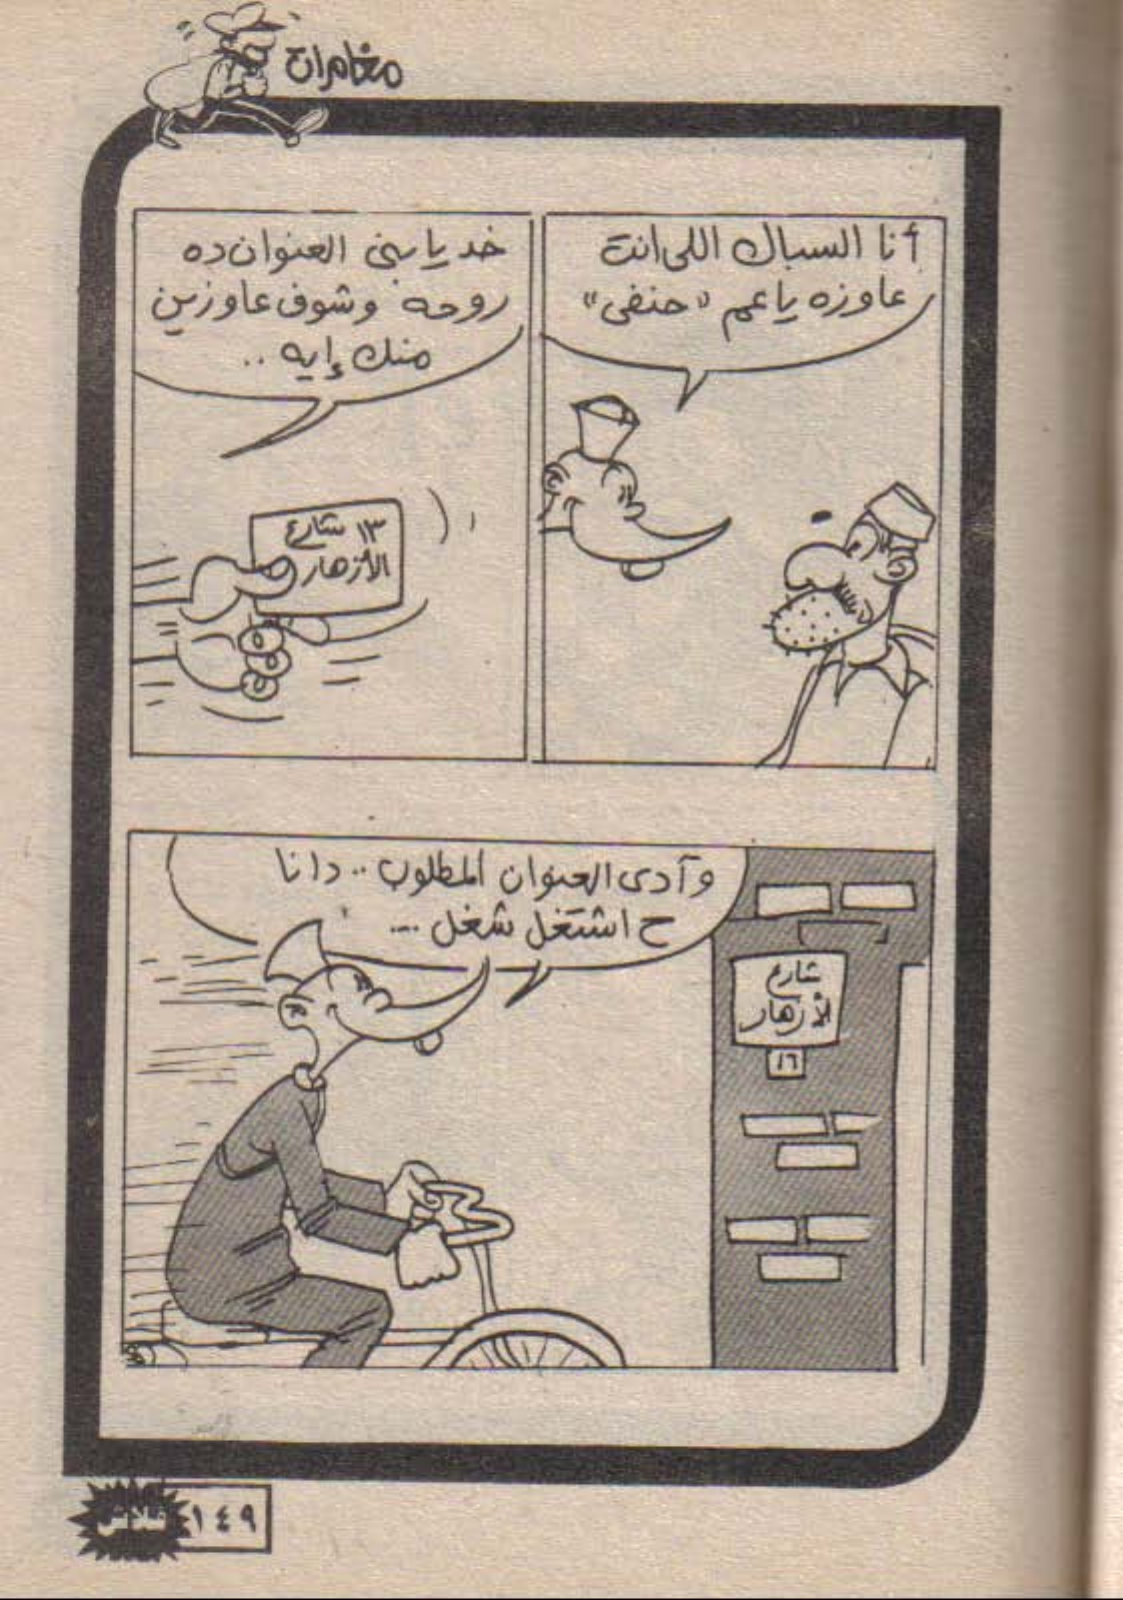 مغامرات
أنا السباك اللى انت
عاوزه يا عم «حنفى»
خد يا بنى العنوان ده
روحه وشوف عاوزين
منك إيه ..
١٣ شارع
الأزهار
وآدى العنوان المطلوب .. دانا
ح اشتغل شغل ...
شارع
الأزهار
١٦
١٤٩
فلاش